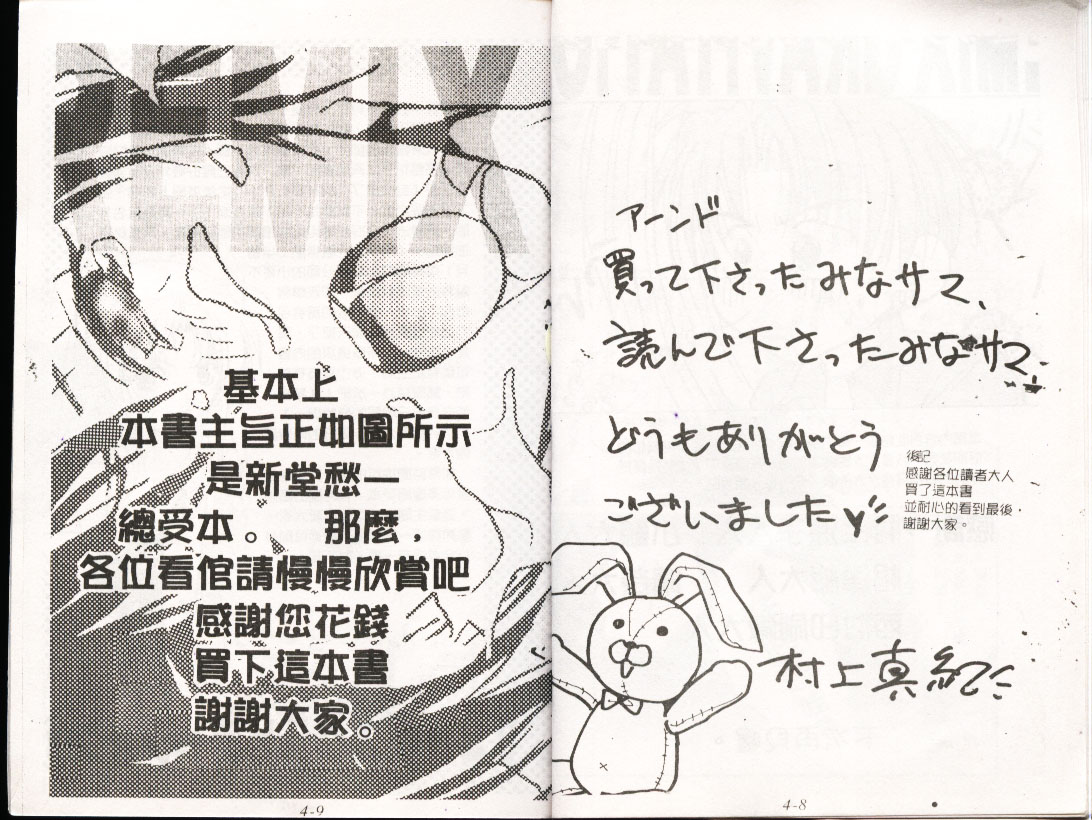 REMIX
基本上
本書主旨正如圖所示
是新堂愁一
總受本。 那麼，
各位看倌請慢慢欣賞吧
感謝您花錢
買下這本書
謝謝大家。
4-9
アーンド
買って下さったみなサマ、
読んで下さったみなサマ、
どうもありがとう
ございました♥
後記
感謝各位讀者大人
買了這本書
並耐心的看到最後，
謝謝大家。
村上真紀
4-8